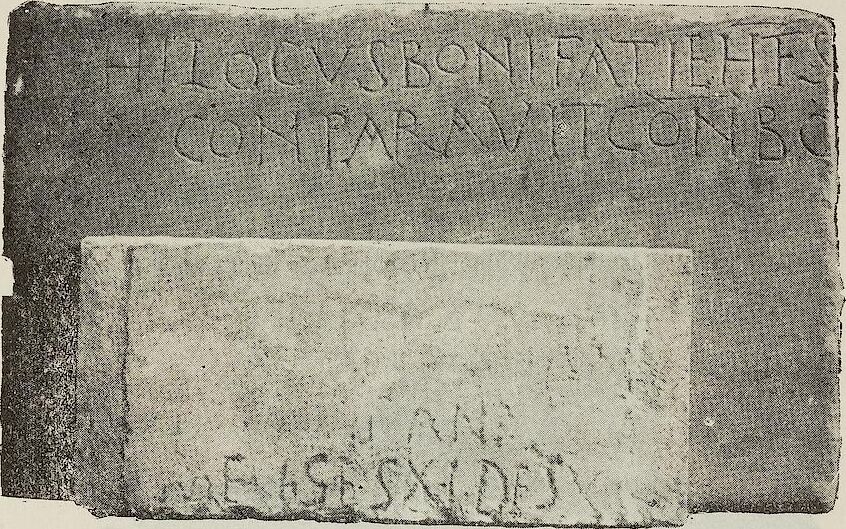 HI LOCVS BONIFATI EHES
CONPARAVIT CONBO
ANN
MENSES XI DES